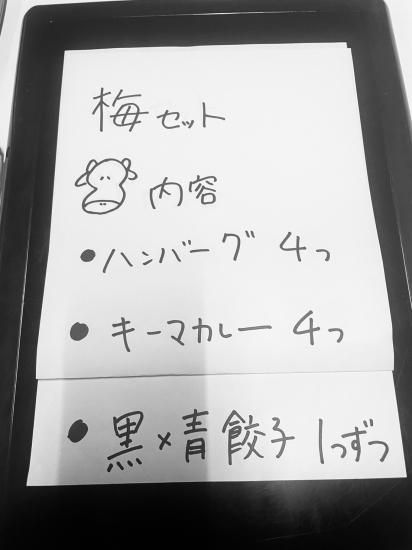 梅セット
内容
●ハンバーグ 4つ
●キーマカレー 4つ
●黒×青餃子 1つずつ